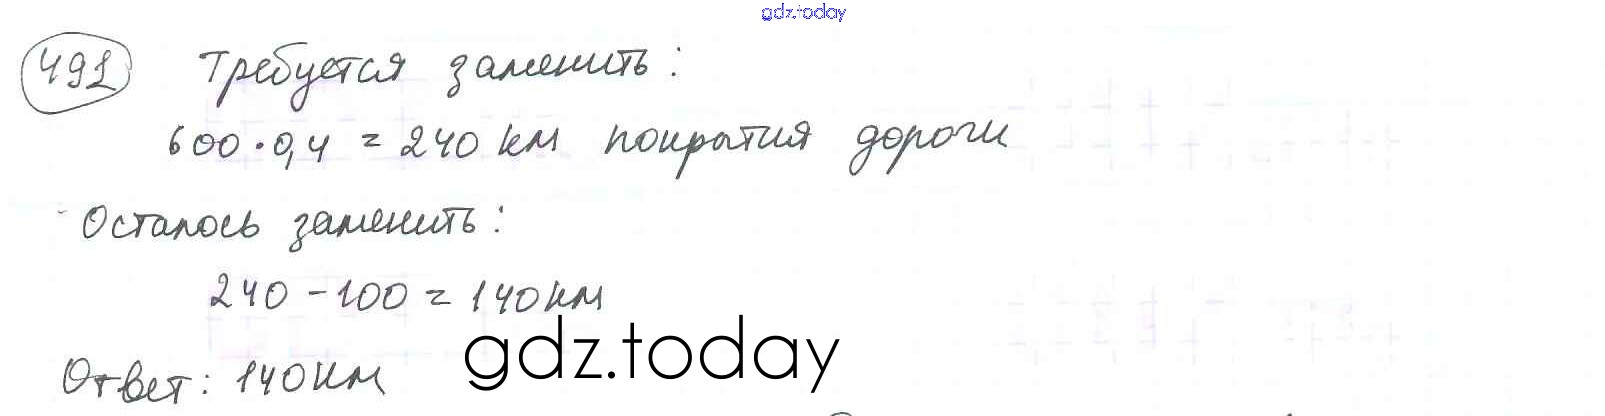 gdz.today
491 Требуется заменить:
600·0,4 = 240 км покрытия дороги
Осталось заменить:
240 - 100 = 140 км
gdz.today
Ответ: 140 км